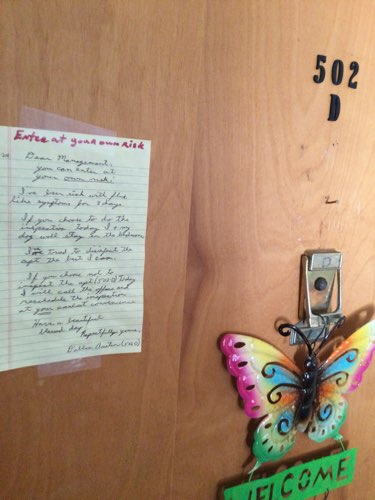 Enter at your own risk
Dear Management,
you can enter at
your own risk.
I've been sick with flu
like symptoms for 3 days.
If you choose to do the
inspection today I + my
dog will stay in the bedroom
I tried to disinfect the
apt the best I can.
If you choose not to
inspect the apt (502D) today
I will call the office and
reschedule the inspection
at your earliest convenience
Have a beautiful
blessed day.
Respectfully yours,
(502D)
502
D
D
WELCOME